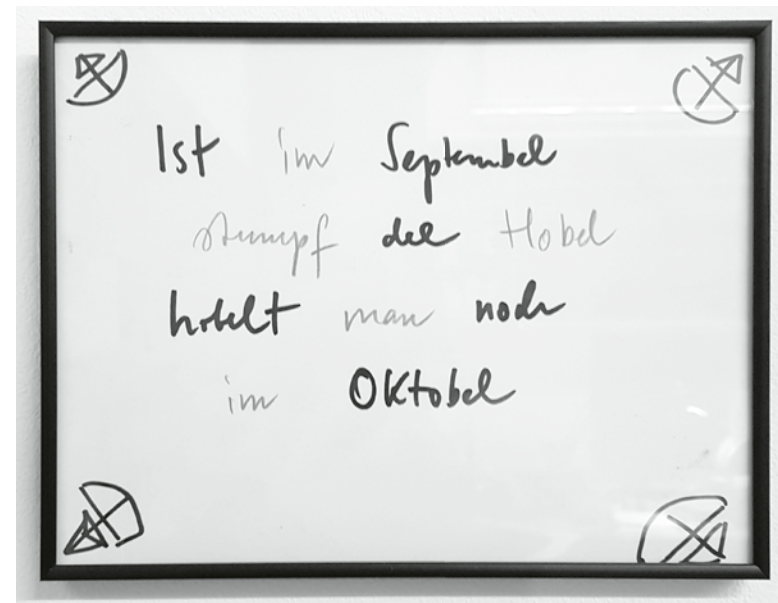 Ist im Septembel
stumpf del Hobel
hobelt man noch
im Oktobel